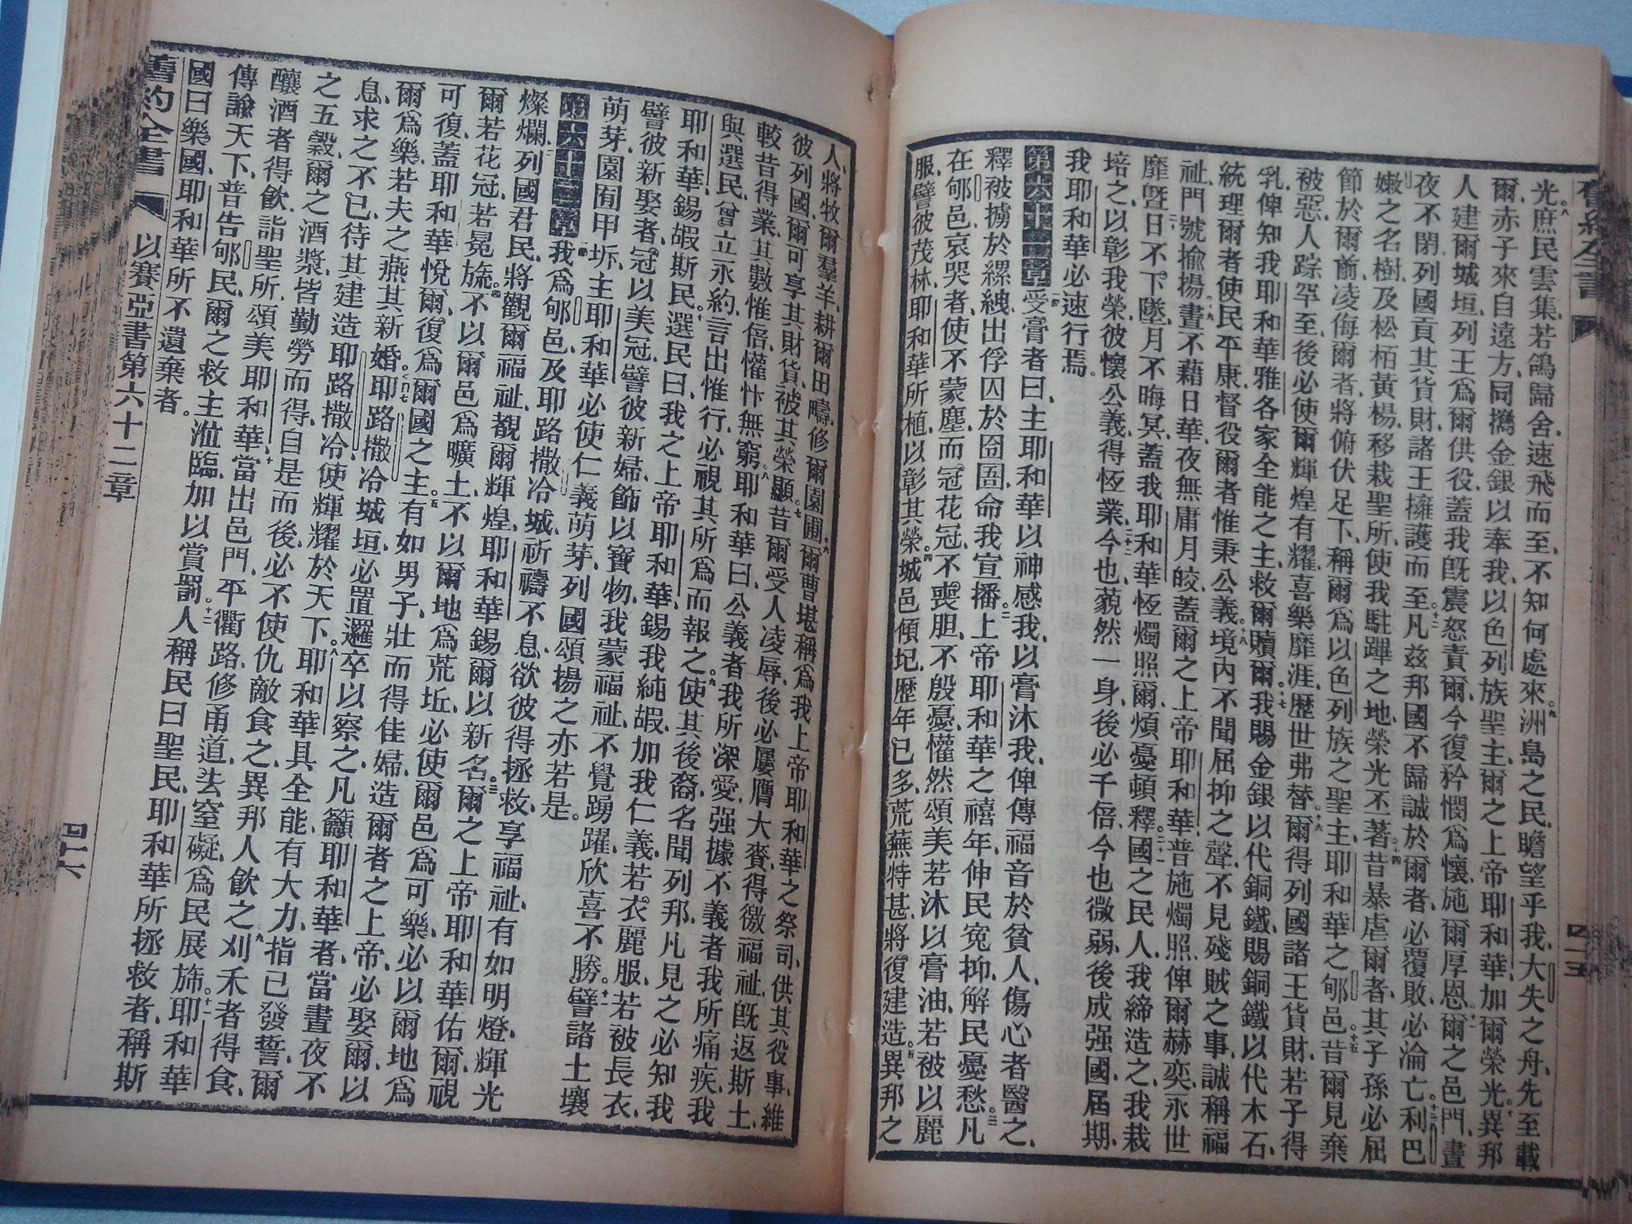 舊約全書
四十五
光庶民雲集若鴿歸舍速飛而至不知何處來洲島之民瞻望乎我大失之舟先至載
爾赤子來自遠方同攜金銀以奉我以色列族聖主爾之上帝耶和華加爾榮光異邦
人建爾城垣列王爲爾供役蓋我旣震怒責爾今復矜憫爲懷施爾厚恩爾之邑門晝
夜不閉列國貢其貨財諸王擁護而至凡茲邦國不歸誠於爾者必覆敗必淪亡利巴
嫩之名樹及松栢黃楊移栽聖所使我駐蹕之地榮光丕著昔暴虐爾者其子孫必屈
節於爾前凌侮爾者將俯伏足下稱爾爲以色列族之聖主耶和華之郇邑昔爾見棄
被惡人踪罕至後必使爾輝煌有耀喜樂靡涯歷世弗替爾得列國諸王貨財若子得
乳俾知我耶和華雅各家全能之主救爾贖爾我賜金銀以代銅鐵賜銅鐵以代木石
統理爾者使民平康督役爾者惟秉公義境內不聞屈抑之聲不見殘賊之事誠稱福
祉門號揄揚晝不藉日華夜無庸月皎蓋爾之上帝耶和華普施燭照俾爾赫奕永世
靡曁日不下墜月不晦冥蓋我耶和華恆燭照爾煩憂頓釋國之民人我締造之我栽
培之以彰我榮彼懷公義得恆業今也藐然一身後必千倍今也微弱後成强國屆期
我耶和華必速行焉
第六十一章受膏者曰主耶和華以神感我以膏沐我俾傳福音於貧人傷心者醫之
釋被擄於縲絏出俘囚於囹圄命我宣播上帝耶和華之禧年伸民寃抑解民憂愁凡
在郇邑哀哭者使不蒙塵而冠花冠不喪胆不殷憂懽然頌美若沐以膏油若被以麗
服譬彼茂林耶和華所植以彰其榮城邑傾圮歷年已多荒蕪特甚將復建造異邦之
人將牧爾羣羊耕爾田疇修爾園圃爾曹堪稱爲我上帝耶和華之祭司供其役事維
彼列國爾可享其財貨被其榮顯昔爾受人凌辱後必屢膺大賚得徼福祉旣返斯土
較昔得業其數惟倍懽忭無窮耶和華曰公義者我所深愛强據不義者我所痛疾我
與選民曾立永約言出惟行必視其所爲而報之使其後裔名聞列邦凡見之必知我
耶和華錫嘏斯民選民曰我之上帝耶和華錫我純嘏加我仁義若衣麗服若被長衣
譬彼新娶者冠以美冠譬彼新婦飾以寶物我蒙福祉不覺踴躍欣喜不勝譬諸土壤
萌芽園囿甲坼主耶和華必使仁義萌芽列國頌揚之亦若是
第六十二章我爲郇邑及耶路撒冷城祈禱不息欲彼得拯救享福祉有如明燈輝光
燦爛列國君民將觀爾福祉覩爾輝煌耶和華錫爾以新名爾之上帝耶和華佑爾視
爾若花冠若冕旒不以爾邑爲曠土不以爾地爲荒坵必使爾邑爲可樂必以爾地爲
可復蓋耶和華悅爾復爲爾國之主有如男子壯而得佳婦造爾者之上帝必娶爾以
爾爲樂若夫之燕其新婚耶路撒冷城垣必置邏卒以察之凡籲耶和華者當晝夜不
息求之不已待其建造耶路撒冷使輝耀於天下耶和華具全能有大力指已發誓爾
之五穀爾之酒漿皆勤勞而得自是而後必不使仇敵食之異邦人飲之刈禾者得食
釀酒者得飲詣聖所頌美耶和華當出邑門平衢路修甬道去窒礙爲民展旆耶和華
傳諭天下普告郇民爾之救主涖臨加以賞罰人稱民曰聖民耶和華所拯救者稱斯
國曰樂國耶和華所不遺棄者
舊約全書
以賽亞書第六十二章
四十六